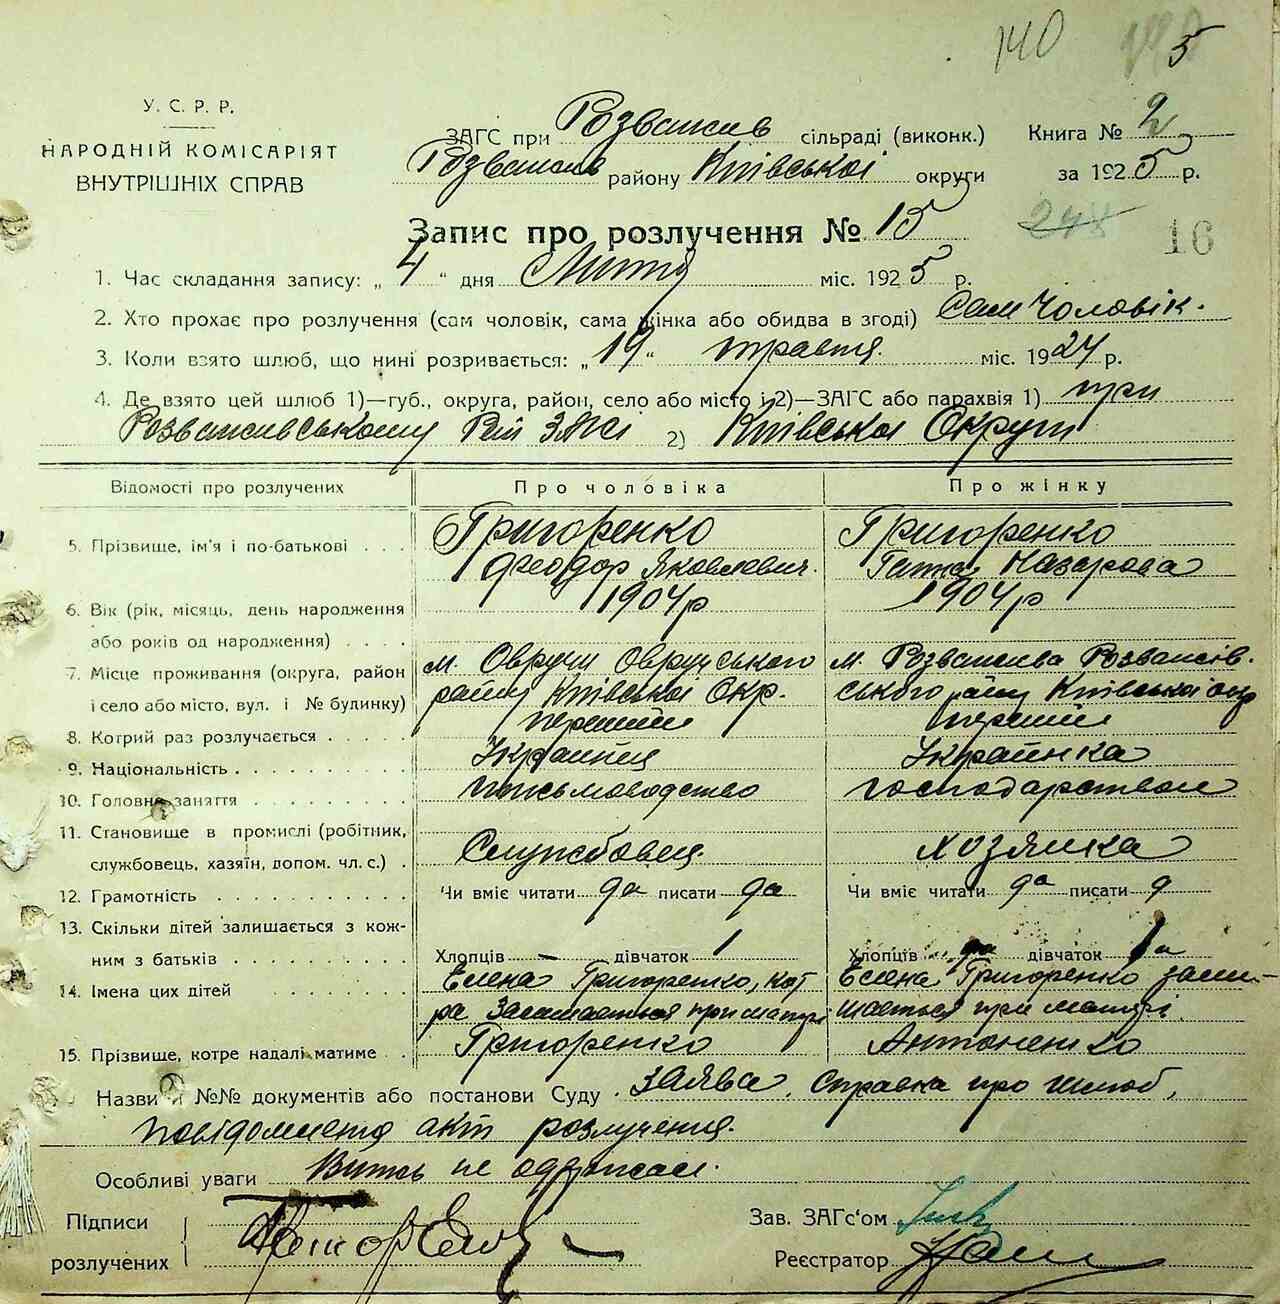 140
5
У. С. Р. Р.
НАРОДНІЙ КОМІСАРІЯТ
ВНУТРІШНІХ СПРАВ
ЗАГС при Розважив сільраді (виконк.) Книга № 2
Розважив району Київської округи за 1925 р.
Запис про розлучення № 15
16
1. Час складання запису: „4" дня Липня міс. 1925 р.
2. Хто прохає про розлучення (сам чоловік, сама жінка або обидва в згоді) Сам Чоловік.
3. Коли взято шлюб, що нині розривається: „19" травня. міс. 1924 р.
4. Де взято цей шлюб 1)—губ., округа, район, село або місто і 2)—ЗАГС або парахвія 1) при
Розважевському Рай ЗАГСі 2) Київської Округи
Відомості про розлучених Про чоловіка Про жінку
5. Прізвище, ім'я і по-батькові . . . Григоренко Григоренко
Феодор Яковлевич. Ганна Назарова
6. Вік (рік, місяць, день народження 1904р 1904р
або років од народження) . . . .
7. Місце проживання (округа, район м. Овручи Овруцького м. Розважева Розважів-
і село або місто, вул. і № будинку) району Київської Окр. ського району Київської окр
8. Котрий раз розлучається . . . . . перший перший
9. Національність . . . . . . . . . . Українец Українка
10. Головне заняття . . . . . . . . . Письмоводство господарством
11. Становище в промислі (робітник,
службовець, хазяїн, допом. чл. с.) . Службовец. хозяйка
12. Грамотність . . . . . . . . . . Чи вміє читати да писати да Чи вміє читати да писати д
13. Скільки дітей залишається з кож-
ним з батьків . . . . . . . . . . Хлопців — дівчаток 1 Хлопців дівчаток
14. Імена цих дітей . . . . . . . Елена Григоренко, кот Елена Григоренко зали-
ра Залишається при матері шається при матері.
15. Прізвище, котре надалі матиме . . Григоренко Антоненко
Назви й №№ документів або постанови Суду. заява, справка про шлюб,
повідомлення акт розлучення.
Особливі уваги Витяг не одержали.
Підписи
розлучених
Зав. ЗАГс'ом
Реєстратор